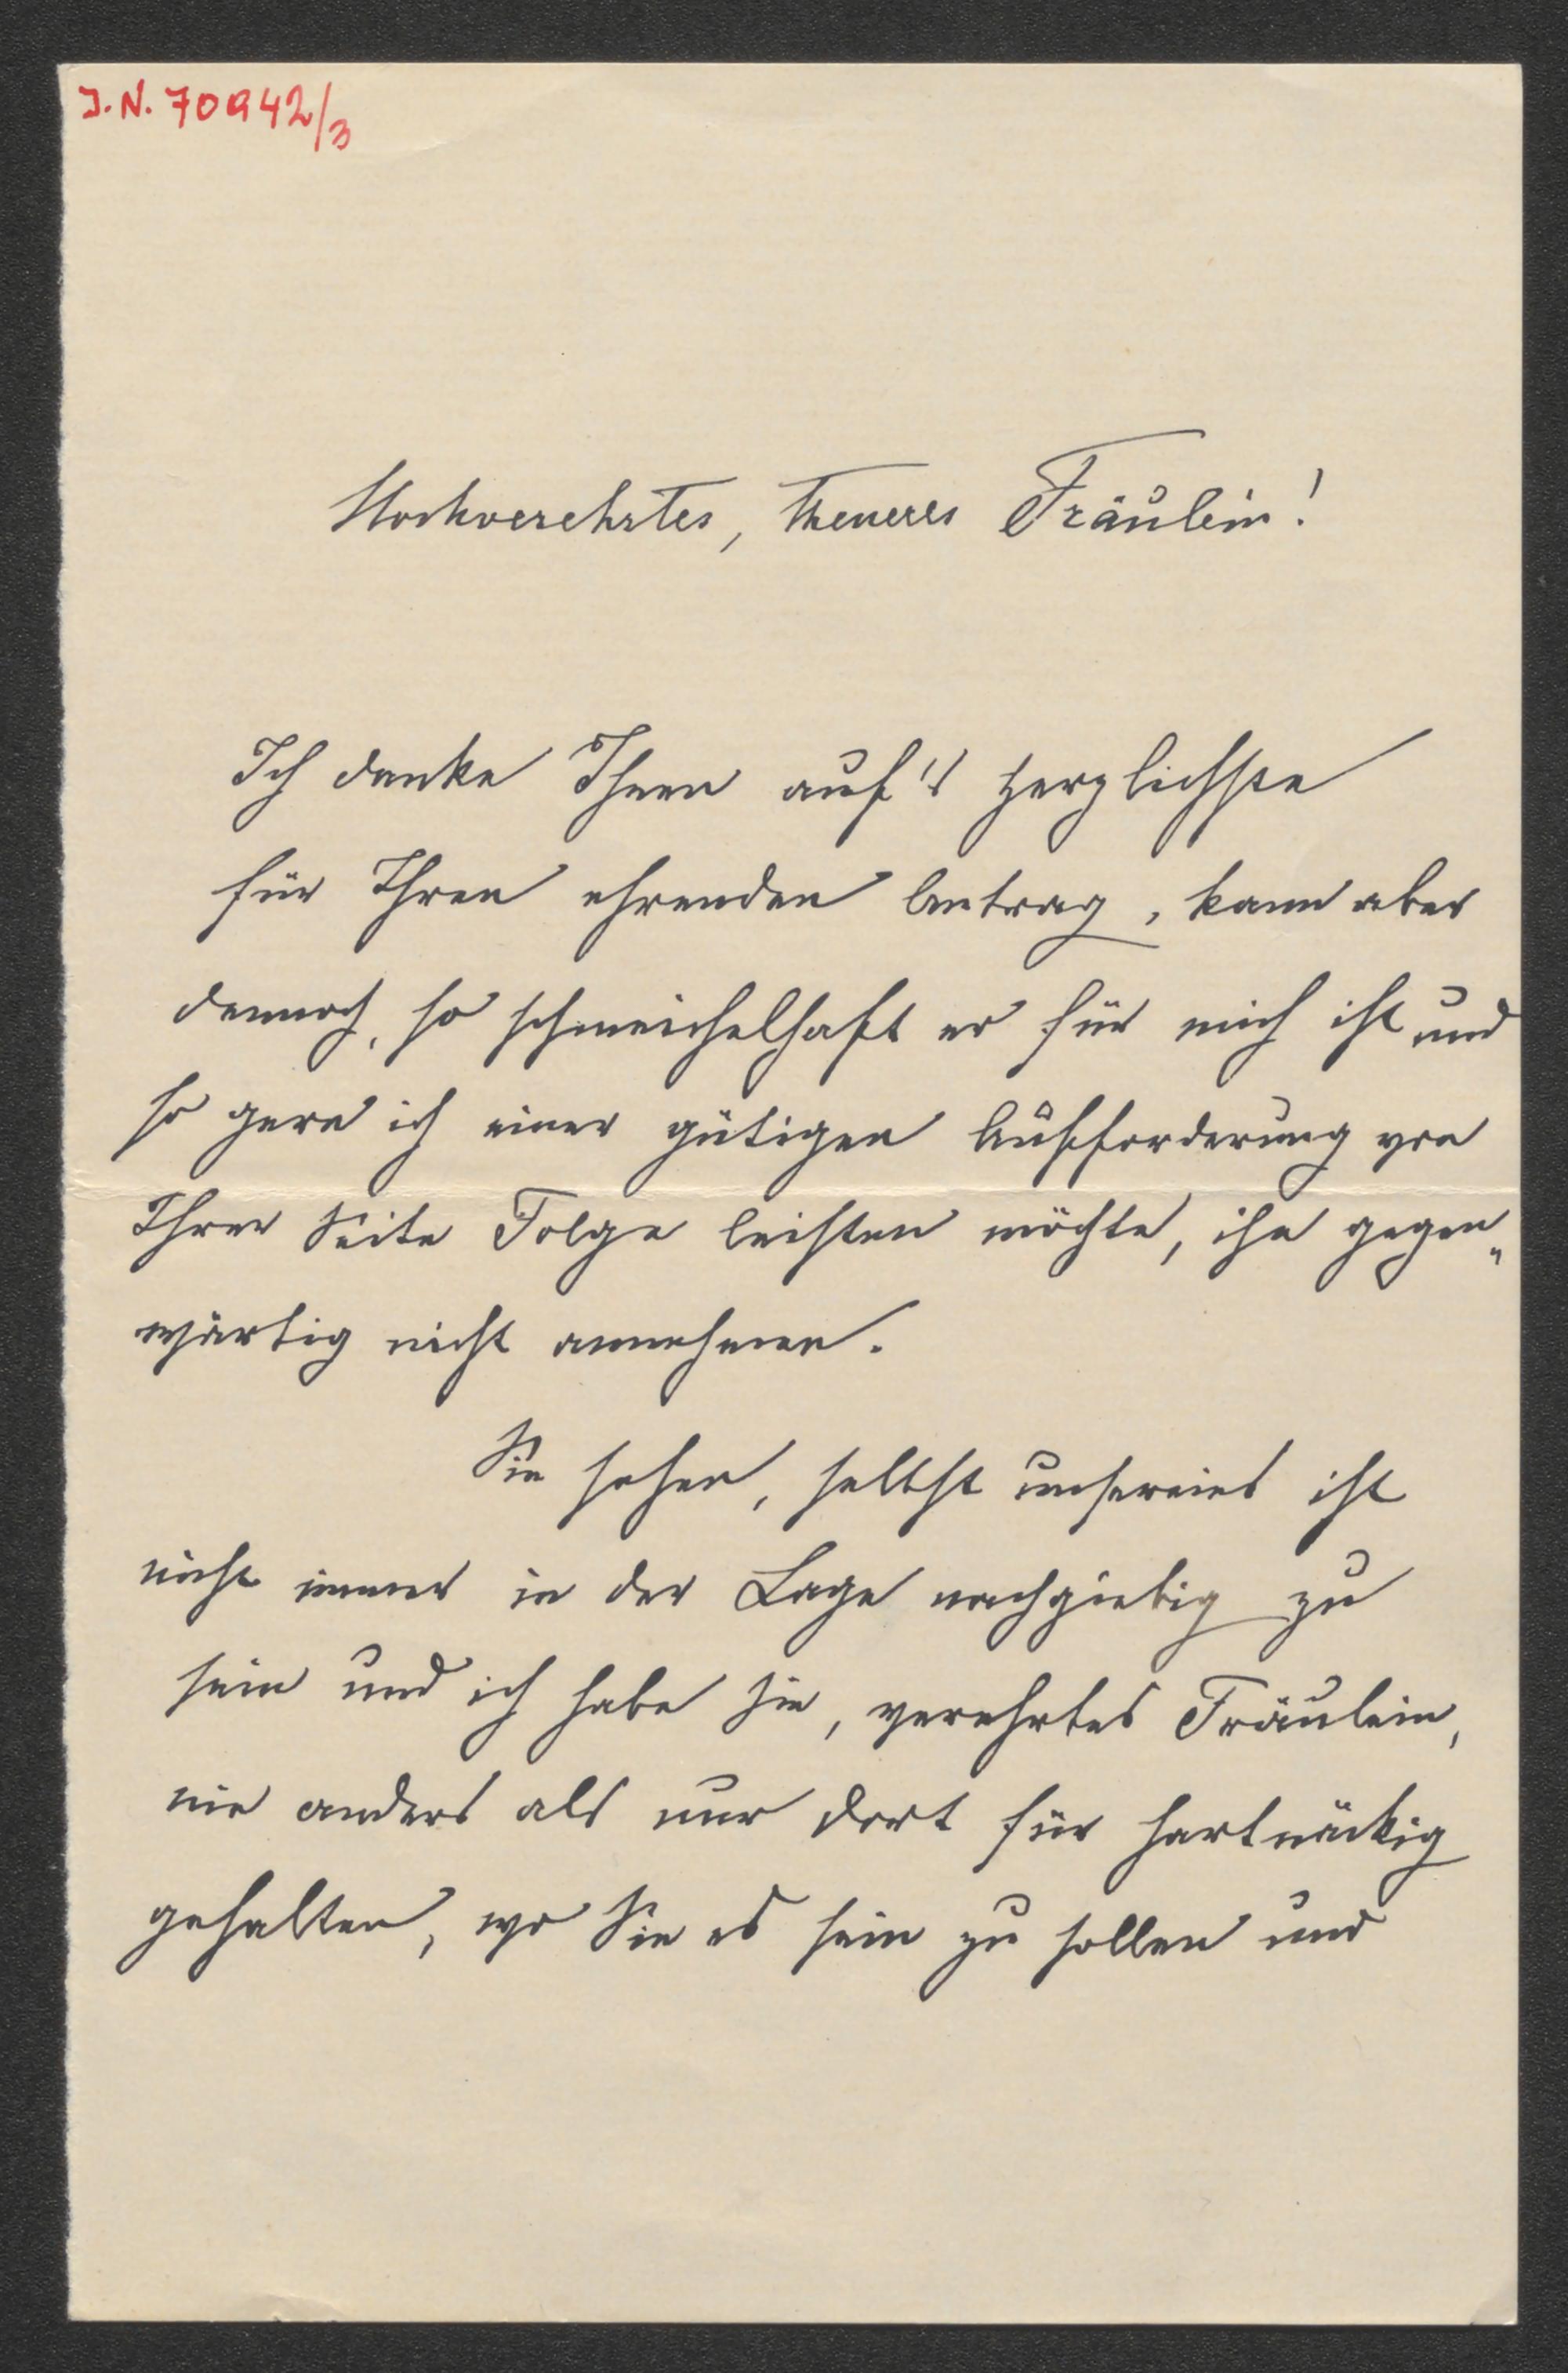 J.N. 70942/3
Hochverehrtes, theueres Fräulein!
Ich danke Ihnen auf's herzlichste
für Ihren ehrenden Antrag, kann aber
dennoch, so schmeichelhaft er für mich ist und
so gern ich einer gütigen Aufforderung von
Ihrer Seite Folge leisten möchte, ihn gegen„
wärtig nicht annehmen.
Sie sehen, selbst unsereins ist
nicht immer in der Lage nachgiebig zu
sein und ich habe Sie, verehrtes Fräulein,
nie anders als nur dort für hartnäckig
gehalten, wo Sie es sein zu sollen und